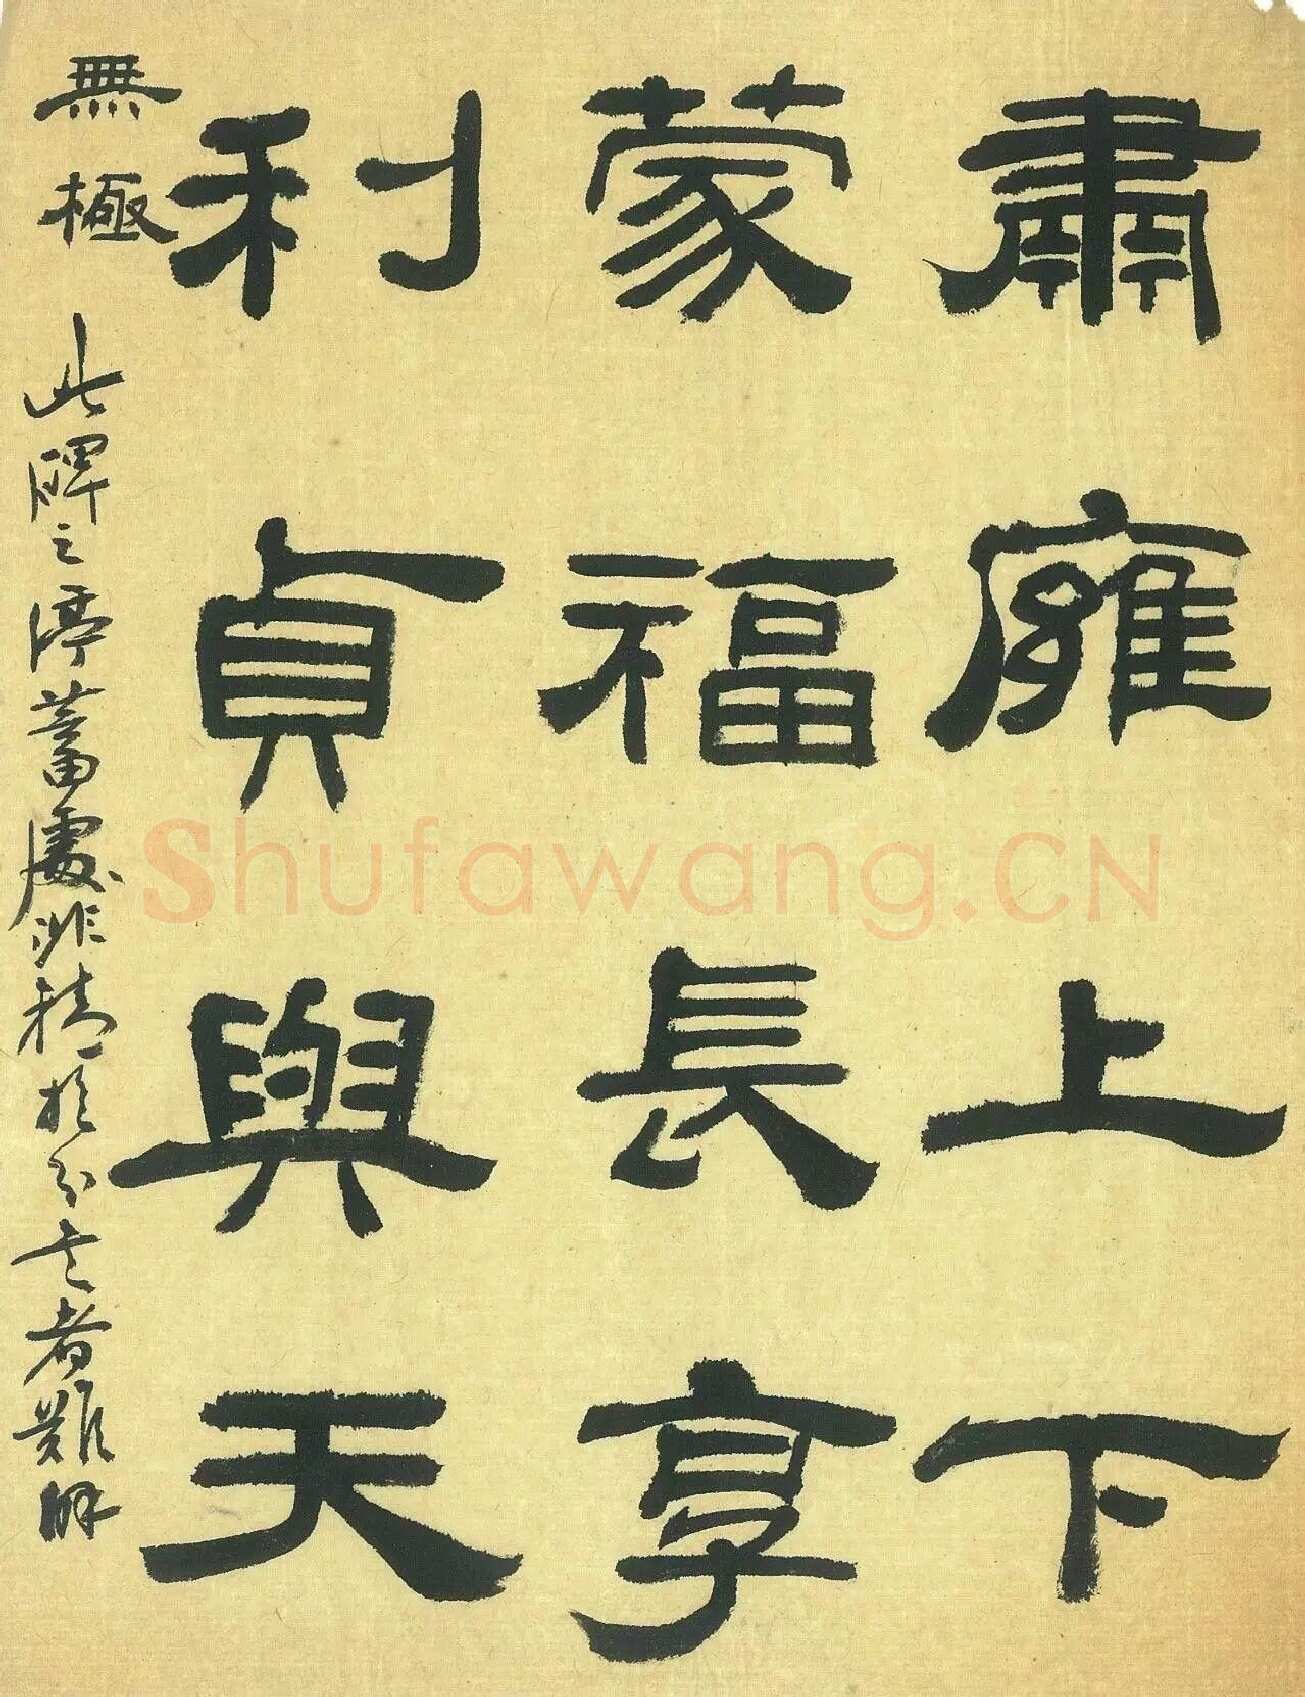 肅雍上下
蒙福長享
利貞與天
無極 此碑之渟蓄處非精於分書者難解
Shufawang.CN